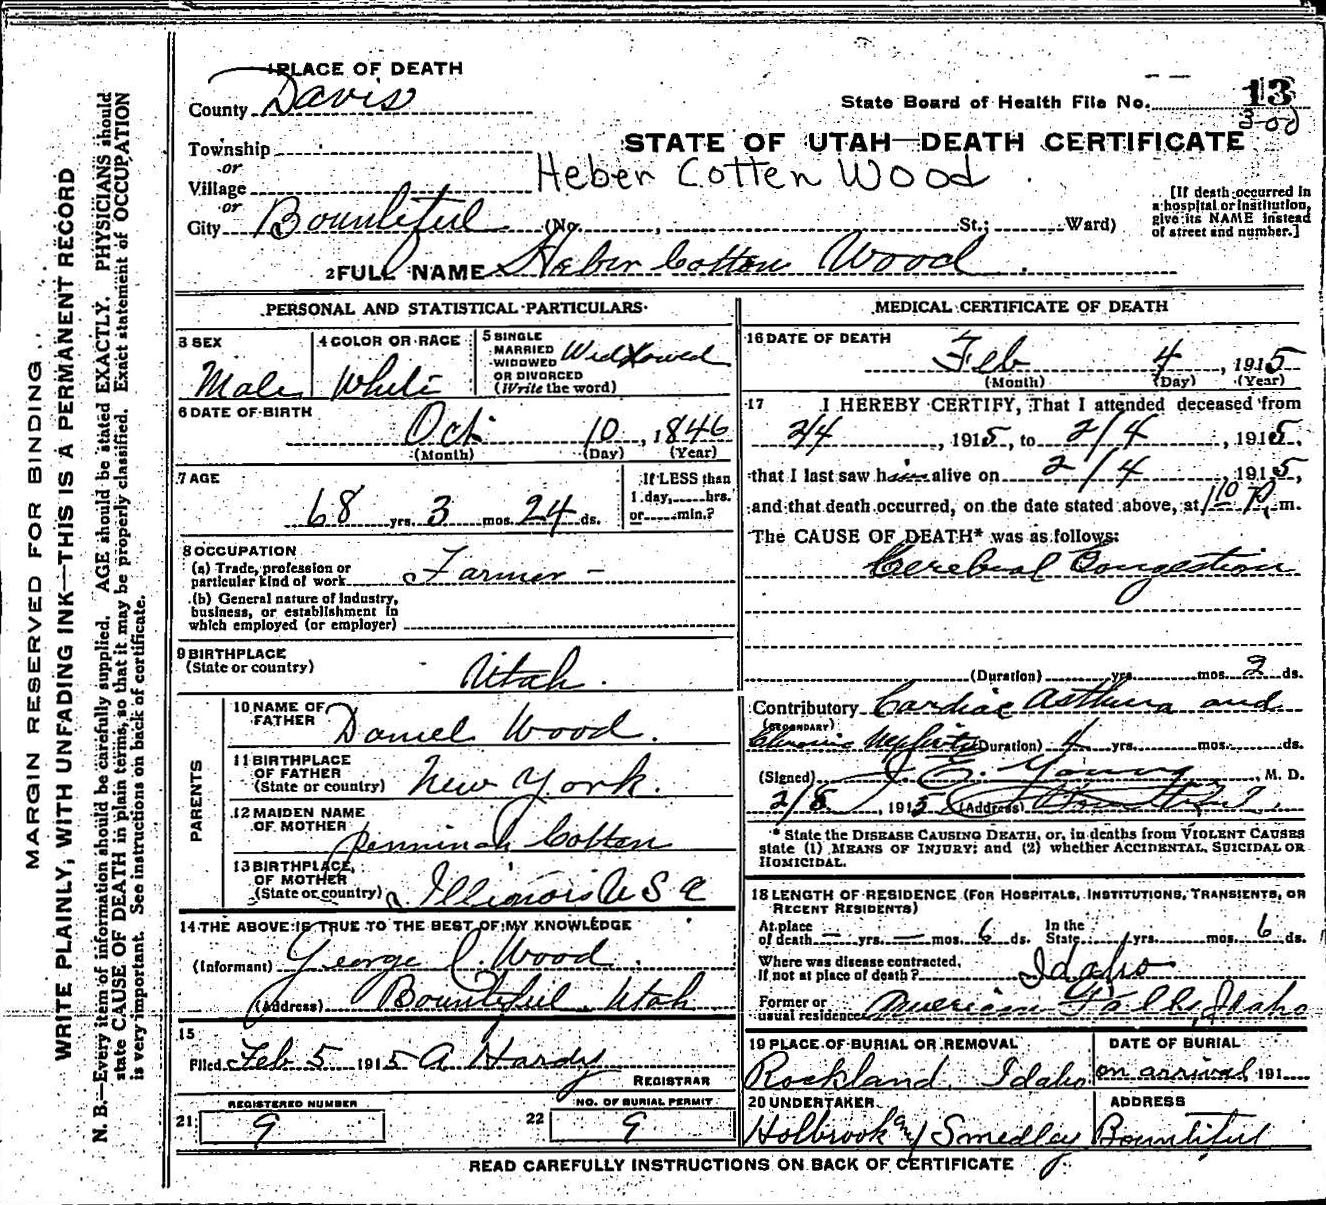 MARGIN RESERVED FOR BINDING
WRITE PLAINLY, WITH UNFADING INK—THIS IS A PERMANENT RECORD
N. B.—Every item of information should be carefully supplied. AGE should be stated EXACTLY. PHYSICIANS should
state CAUSE OF DEATH in plain terms, so that it may be properly classified. Exact statement of OCCUPATION
is very important. See instructions on back of certificate.
1 PLACE OF DEATH
County Davis
State Board of Health File No. 13
Township
STATE OF UTAH—DEATH CERTIFICATE
or
Village
Heber Cotten Wood
or
City Bountiful (No. , St.; Ward)
[If death occurred in
a hospital or institution,
give its NAME instead
of street and number.]
2 FULL NAME Heber Cotten Wood
PERSONAL AND STATISTICAL PARTICULARS
3 SEX Male
4 COLOR OR RACE White
5 SINGLE
MARRIED
WIDOWED
OR DIVORCED
(Write the word)
Widowed
6 DATE OF BIRTH
Oct 10, 1846
(Month) (Day) (Year)
7 AGE
68 yrs. 3 mos. 24 ds.
If LESS than
1 day, hrs.
or min.?
8 OCCUPATION
(a) Trade, profession or
particular kind of work Farmer -
(b) General nature of industry,
business, or establishment in
which employed (or employer)
9 BIRTHPLACE
(State or country)
Utah.
PARENTS
10 NAME OF
FATHER Daniel Wood.
11 BIRTHPLACE
OF FATHER
(State or country) New York.
12 MAIDEN NAME
OF MOTHER Penninah Cotten
13 BIRTHPLACE
OF MOTHER
(State or country) Illinois U S A
14 THE ABOVE IS TRUE TO THE BEST OF MY KNOWLEDGE
(Informant) George C. Wood.
(Address) Bountiful, Utah
15
Filed Feb 5 1915 A Hardy
REGISTRAR
REGISTERED NUMBER
21: 9
NO. OF BURIAL PERMIT
22 9
MEDICAL CERTIFICATE OF DEATH
16 DATE OF DEATH
Feb 4, 1915
(Month) (Day) (Year)
17 I HEREBY CERTIFY, That I attended deceased from
2/4, 1915, to 2/4, 1915,
that I last saw him alive on 2/4 1915,
and that death occurred, on the date stated above, at m.
The CAUSE OF DEATH* was as follows:
Cerebral Congestion
(Duration) yrs. mos. 2 ds.
Contributory Cardiac Asthma and
(SECONDARY)
Chronic Nephritis (Duration) 4 yrs. mos. ds.
(Signed) J. E. Young, M. D.
2/5, 1915 (Address) Bountiful.
* State the DISEASE CAUSING DEATH, or, in deaths from VIOLENT CAUSES
state (1) MEANS OF INJURY; and (2) whether ACCIDENTAL, SUICIDAL OR
HOMICIDAL.
18 LENGTH OF RESIDENCE (FOR HOSPITALS, INSTITUTIONS, TRANSIENTS, OR
RECENT RESIDENTS)
At place
of death — yrs. — mos. 6 ds.
In the
State yrs. mos. 6 ds.
Where was disease contracted,
If not at place of death? Idaho
Former or
usual residence American Falls, Idaho
19 PLACE OF BURIAL OR REMOVAL
Rockland Idaho
DATE OF BURIAL
on arrival, 191
20 UNDERTAKER
Holbrook and Smedley
ADDRESS
Bountiful
READ CAREFULLY INSTRUCTIONS ON BACK OF CERTIFICATE